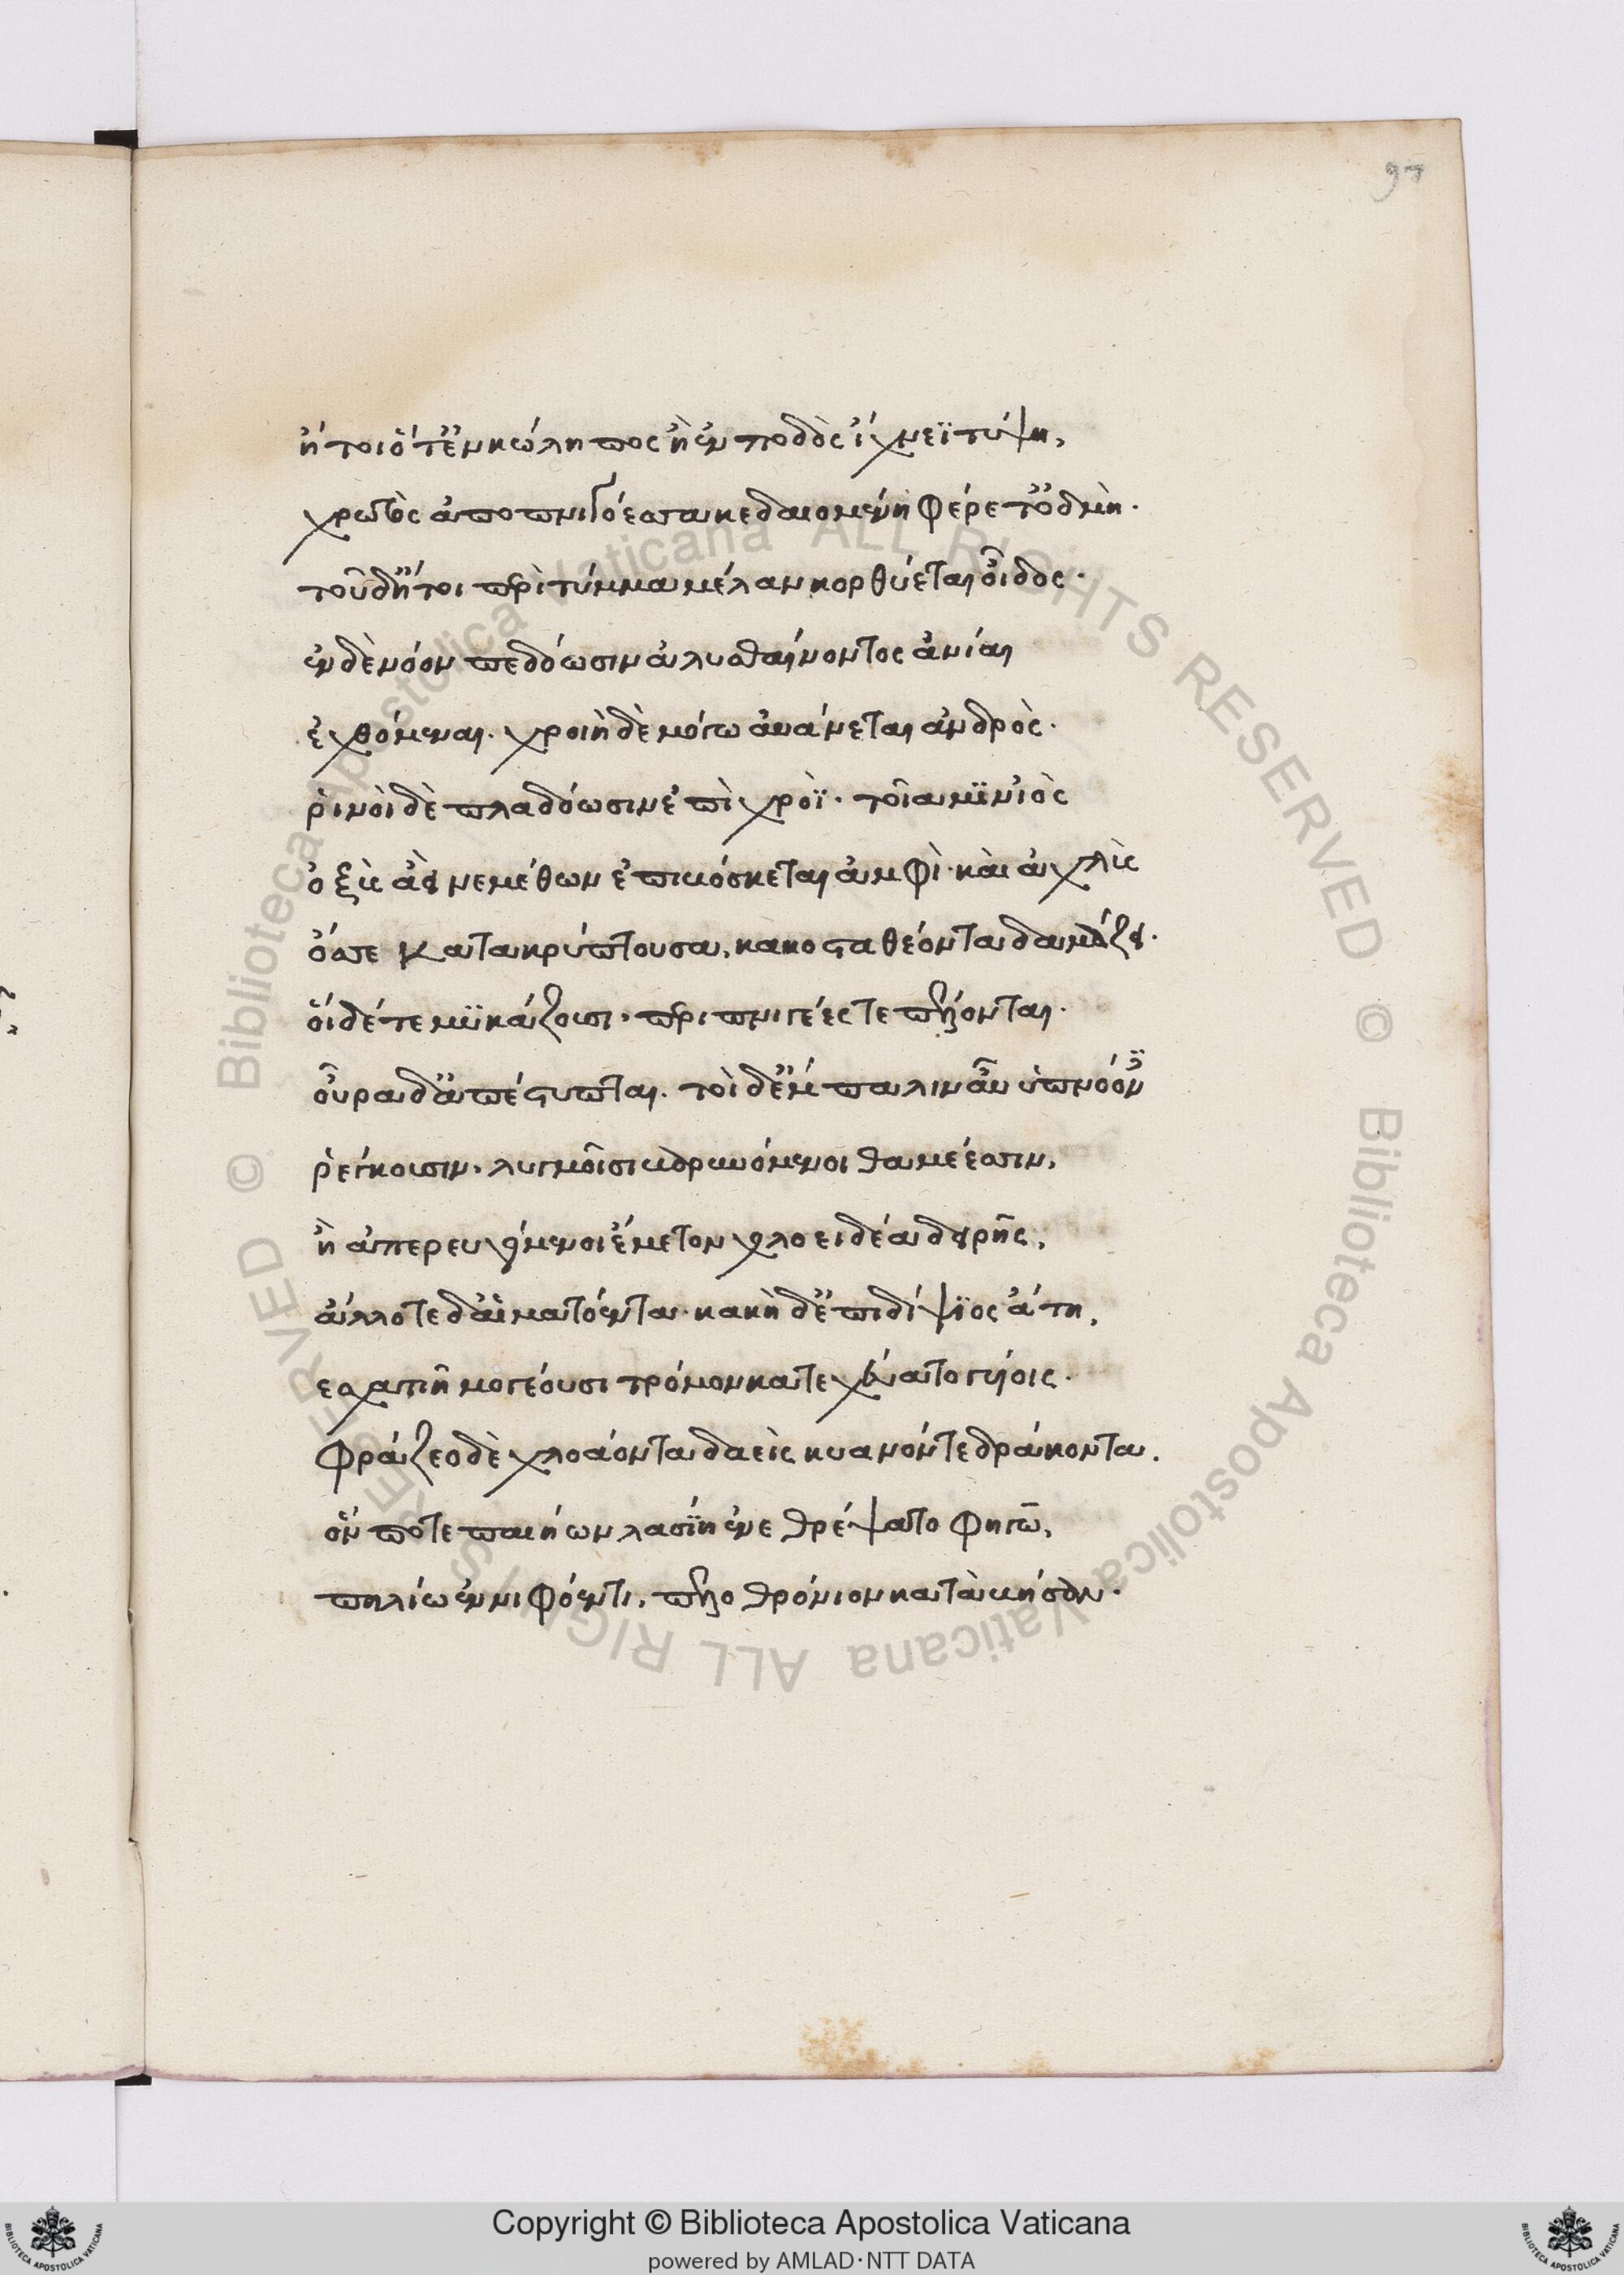 97
ἤτοι ὅτ' ἐν κώληπος ἢ ἐν ποδὸς ἴχνεϊ τύψη,
χρωτὸς ἄπο πνιγόεσσα κεδαιομένη φέρετ' ὀδμή.
τοῦ δ' ἤτοι περὶ τύμμα μέλαν κορθύεται οἶδος.
ἐν δὲ νόον πεδόωσιν ἀλυσθαίνοντος ἀνίαι
ἐχθόμεναι. χροιὴ δὲ μόγω αὐαίνεται ἀνδρός.
ῥινοὶ δὲ πλαδόωσιν ἐπὶ χροΐ. τοῖά μιν ἰὸς
ὀξὺς ἀεὶ νεμέθων ἐπιβόσκεται ἀμφὶ. καὶ ἀχλὺς
ὄσσε κατακρύπτουσα, κακοσταθέοντα δαμάζει.
οἱ δέ τε μηκάζουσι. περιπνιγέες τε πέλονται.
οὖρα δ' ἀπέστυπται. τοὶ δ' ἔμπαλιν αὖ ὑπνόοντες
ῥέγκουσιν. λυγμοῖσι βαρυνόμενοι θαμέεσσιν,
ἢ ἀπερευγόμενοι ἔμετον χολοειδέα δειρῆς,
ἄλλοτε δ' αἱματόεντα. κακὴ δ' ἐπιδίψιος ἄτη,
ἐσχατίη μογέουσι τρόμον κατεχεύατο γυίοις.
Φράζεο δὲ χλοάοντα δαεὶς κύανόν τε δράκοντα.
ὅν ποτε παιήων λασίη ἐνεθρέψατο φηγῶ,
πηλίω ἐν νιφόεντι, πελεθρόνιον κατὰ βῆσσαν.
Copyright © Biblioteca Apostolica Vaticana
powered by AMLAD·NTT DATA